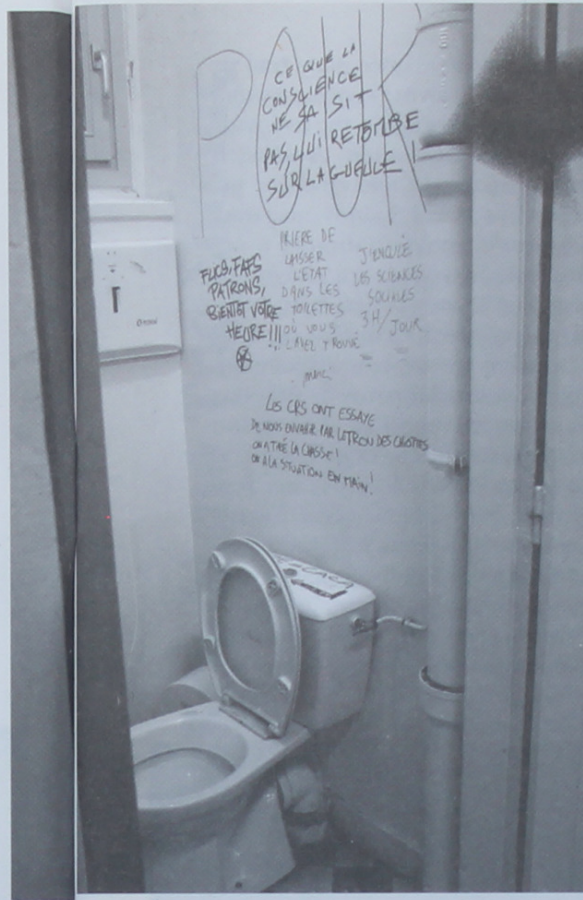 POUR
CE QUE LA
CONSCIENCE
NE SAISIT
PAS, LUI RETOMBE
SUR LA GUEULE !
FLICS, FAFS
PATRONS,
BIENTOT VOTRE
HEURE!!!
PRIERE DE
LAISSER
L'ETAT
DANS LES
TOILETTES
OÙ VOUS
L'AVEZ TROUVÉ
merci
J'ENCULE
LES SCIENCES
SOCIALES
3H/JOUR
LES CRS ONT ESSAYE
DE NOUS ENVAHIR PAR LE TROU DES CHIOTTES
ON A TIRÉ LA CHASSE!
ON A LA SITUATION EN MAIN!
CACA